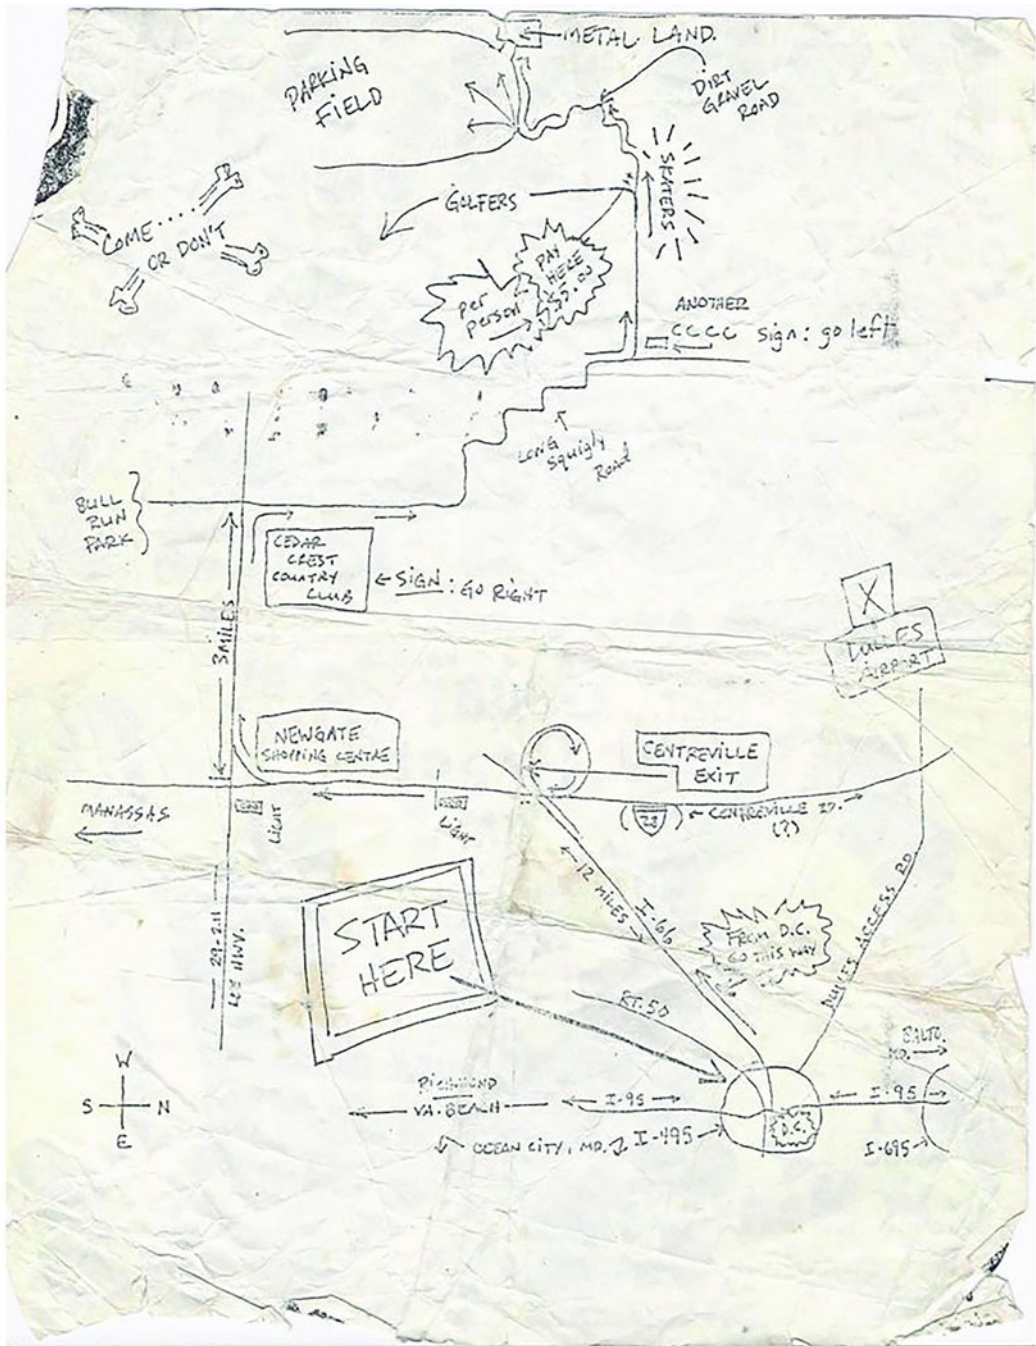 METAL LAND.
PARKING
FIELD
DIRT
GRAVEL
ROAD
SKATERS
GOLFERS
COME ....
OR DON'T
PAY
HERE
$5.00
per
person
ANOTHER
CCCC sign: go left
LONG
squigly
ROAD
BULL
RUN
PARK
CEDAR
CREST
COUNTRY
CLUB
SIGN: GO RIGHT
3 MILES
X
DULLES
AIRPORT
NEWGATE
SHOPPING CENTRE
CENTREVILLE
EXIT
MANASSAS
LIGHT
LIGHT
(28) CENTREVILLE RD.
(?)
12 MILES
I-66
FROM D.C.
GO THIS WAY
DULLES ACCESS RD
START
HERE
29-211
LEE HWY.
RT. 50
BALTO.
MD.
W
S N
E
RICHMOND
VA. BEACH
I-95
D.C.
I-95
OCEAN CITY, MD.
I-495
I-695